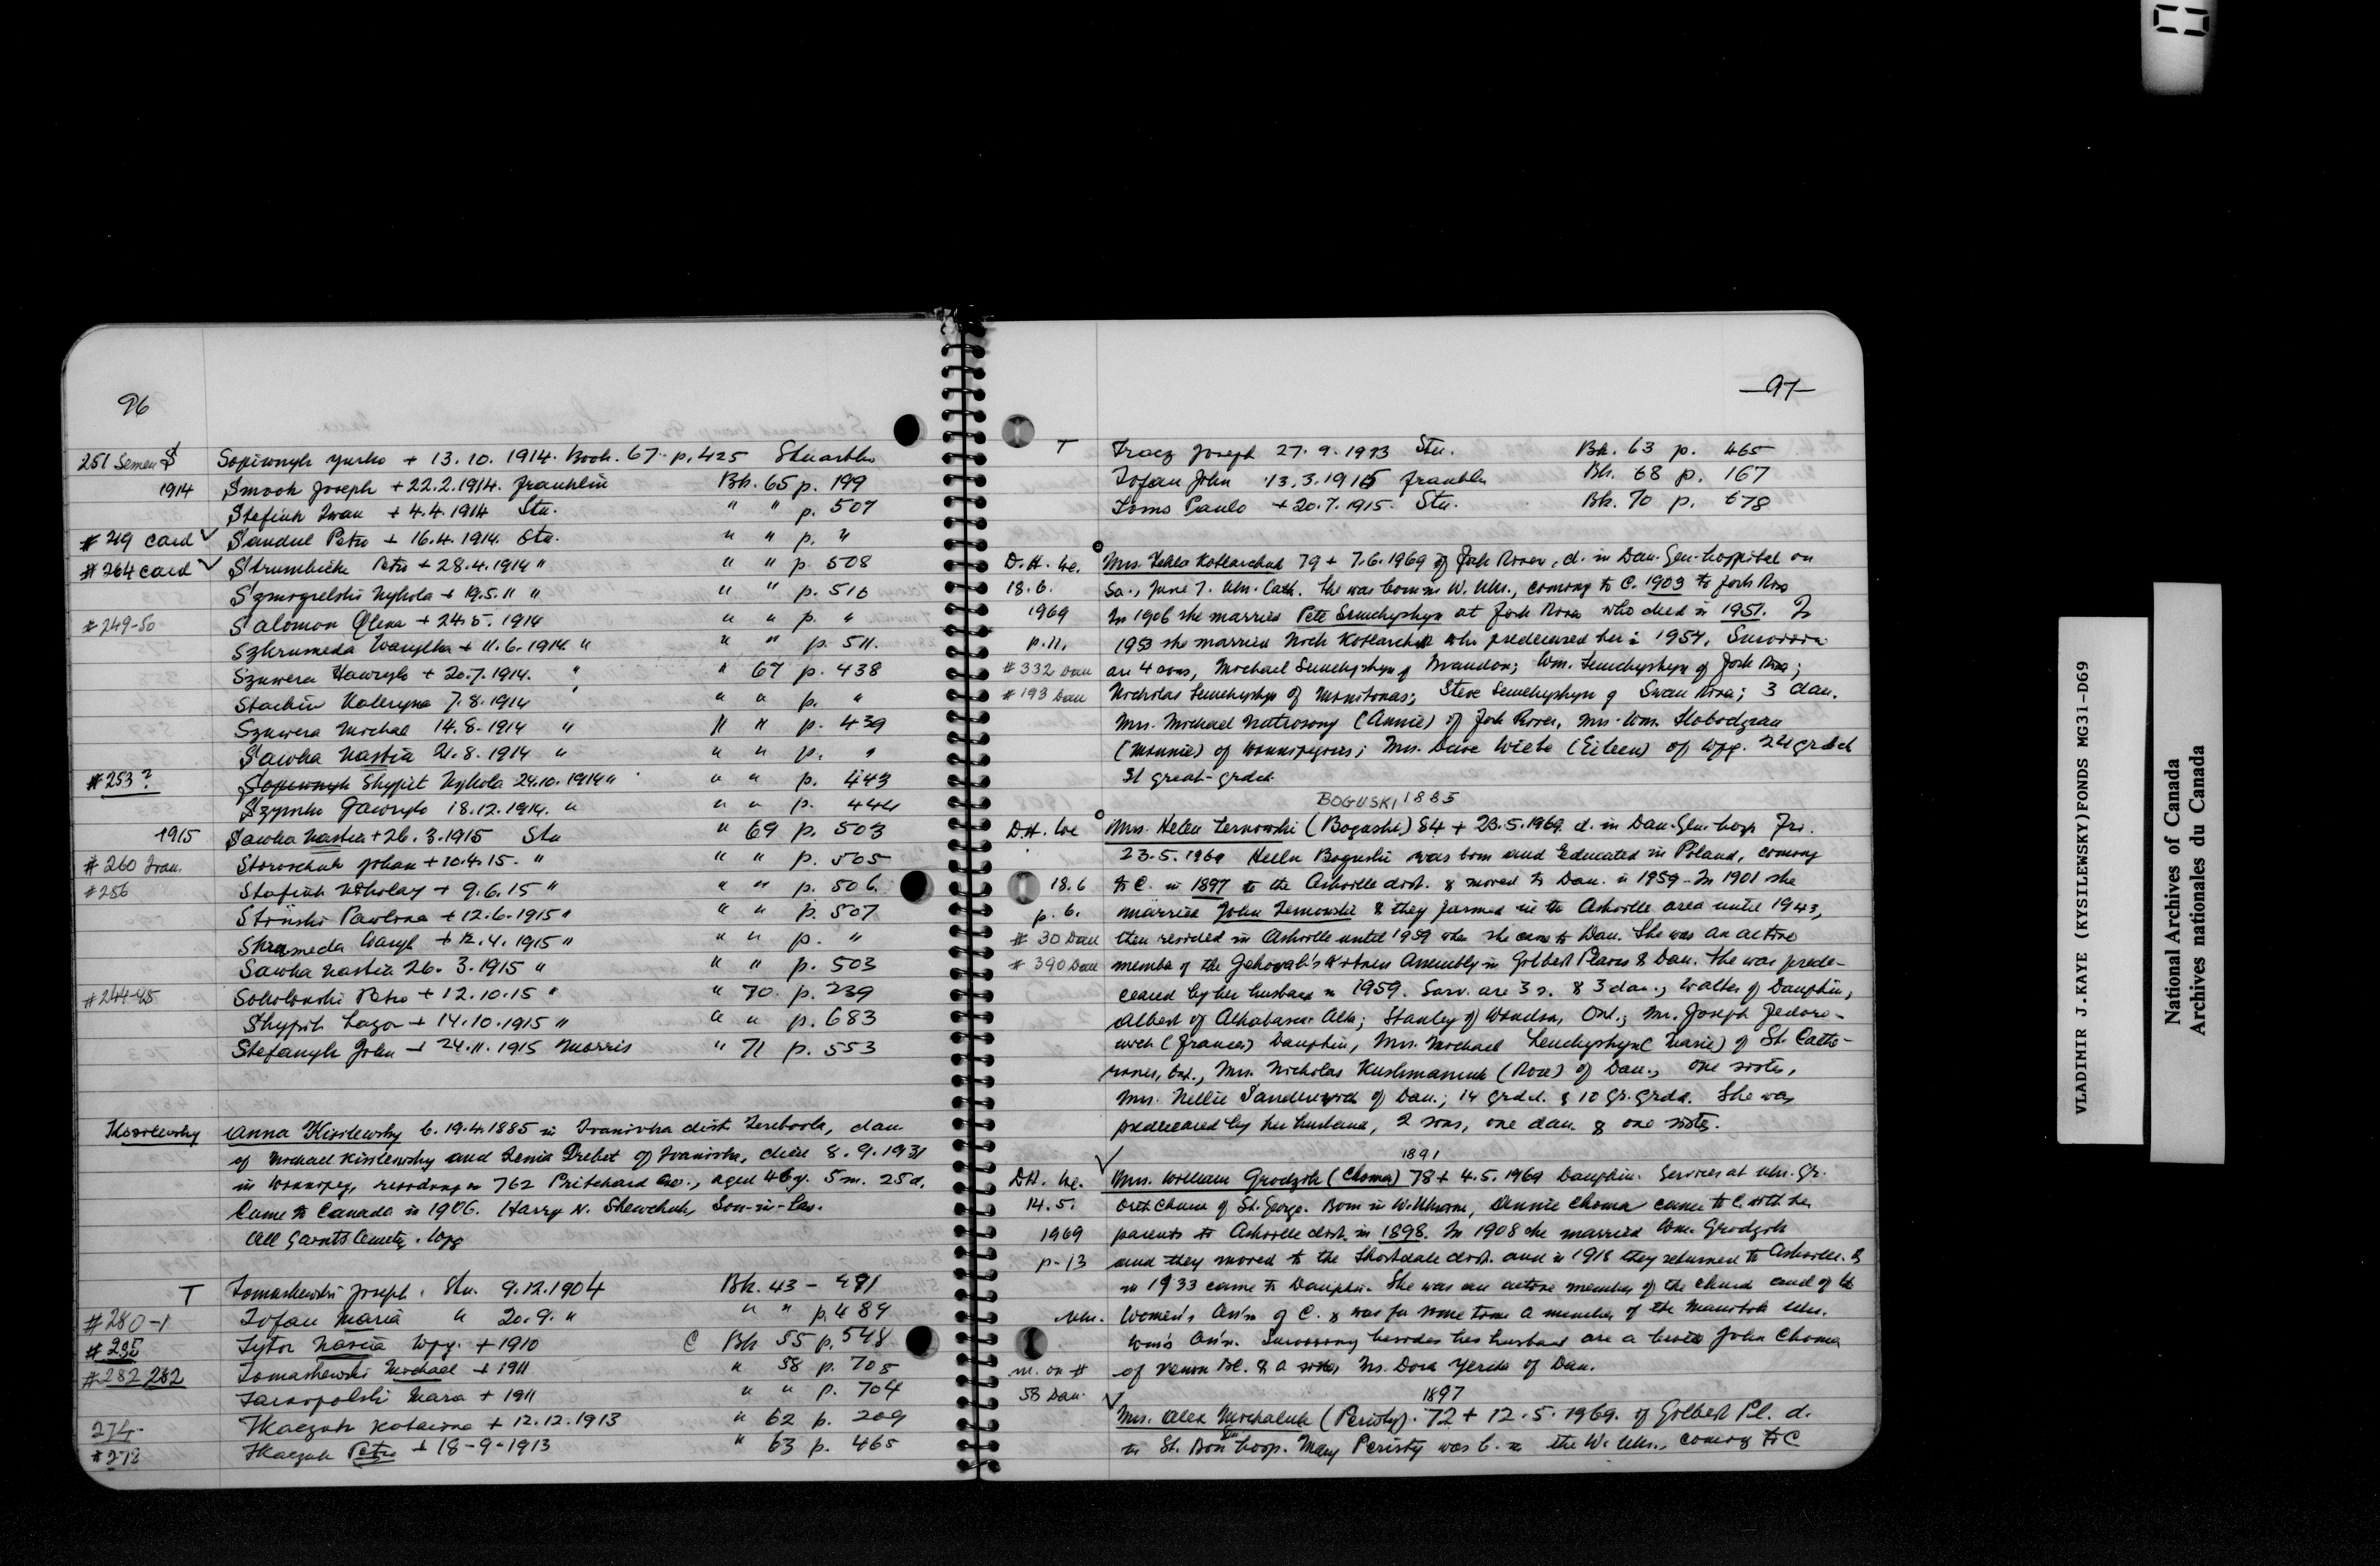 96
251 Semen S Sopiwnyk Yurko + 13.10.1914. Book. 67. p. 425 Stuartbu
1914 Smook Joseph + 22.2.1914. Franklin Bk. 65 p. 199
Stefiuk Iwan + 4.4.1914 Stu. " " p. 507
# 219 card ✓ Sandul Petro + 16.4.1914. Stu. " " p. "
# 264 card ✓ Strumbicki Petro + 28.4.1914 " " " p. 508
Szmigelski Nykola + 19.5.11 " " " p. 510
# 249-50 Salomon Olena + 24.5.1914 " " p. "
Szkrumeda Wasylka + 11.6.1914. " " " p. 511.
Szuwera Hawrylo + 20.7.1914. " " 67 p. 438
Stachiw Kateryna 7.8.1914 ' " " p. "
Szuwera Michal 14.8.1914 " " " p. 439
Sawka Nastia 21.8.1914 " " " p. "
# 253? Skypit Nykola 24.10.1914 " " " p. 443
Gawrylo 18.12.1914. " " " p. 444
1915 Sawka Nastia + 26.3.1915 Stu " 69 p. 503
# 260 Fran. Storoschuk Johan + 10.4.15. " " " p. 505
# 256 Stafiuk Nikolay + 9.6.15 " " " p. 506.
Stinski Pawlina + 12.6.1915 " " " p. 507
Skrumeda Wasyl + 12.4.1915 " " " p. "
Sawka Nastia 26.3.1915 " " " p. 503
# 244-45 Sokolowski Petro + 12.10.15 " " 70. p. 239
Skypit Lazor + 14.10.1915 " " " p. 683
Stefanyk John + 24.11.1915 Morris " 71 p. 553
Kisilewsky Anna Kisilewsky b. 19.4.1885 in Ivanivka dist. Terebovla, dau
of Michael Kisilewsky and Xenia Drebet of Ivanivka, died 8.9.1931
in Winnipeg, residing on 762 Pritchard Ave., aged 46 y. 5 m. 25 d.
Came to Canada in 1906. Harry N. Shewchuk, Son-in-Law.
All Saints Cemety. Wpg
T Tomashewski Joseph. Stu. 9.12.1904 Bk. 43 - 491
# 280-1 Tofan Maria " 20.9. " " " p. 489
# 295 Tytor Nascia Wpg. + 1910 C Bk 55 p. 548
# 282 282 Tomashewski Michael + 1911 " 58 p. 705
Tarnopolski Mara + 1911 " " p. 704
274- Tkaczuk Katarina + 12.12.1913 " 62 p. 209
# 273 Tkaczuk Petro + 18-9-1913 " 63 p. 465
—97—
T Tracz Joseph 27.9.1913 Stu. Bk. 63 p. 465
Tofan John 13.3.1915 Franklin Bk. 68 p. 167
Toms Paulo + 20.7.1915. Stu. Bk. 70 p. 678
D.H. We. Mrs. Tekla Kotlarchuk 79 + 7.6.1969 of Fork River, d. in Dau. Gen. hospital on
18.6. Sa., June 7. Ukr. Cath. She was born in W. Ukr., coming to C. 1903 to Fork River
1969 In 1906 she married Pete Semchyshyn at Fork River who died in 1951. In
p. 11. 1953 she married Nick Kotlarchuk who predeceased her in 1954. Survivors
# 332 Dau are 4 sons, Michael Semchyshyn of Brandon; Wm. Semchyshyn of Fork River;
# 193 Dau Nicholas Semchyshyn of Minitonas; Steve Semchyshyn of Swan River; 3 dau.
Mrs. Michael Natrosony (Annie) of Fork River, Mrs. Wm. Slobodzian
(Minnie) of Winnipegosis; Mrs. Dave Wiebe (Eileen) of Wpg. 24 grdch
31 great-grdch.
BOGUSKI 1885
D.H. We Mrs. Helen Ternowski (Boguski) 84 + 23.5.1969. d. in Dau. Gen. hosp. Fri.
23.5.1969 Helen Boguski was born and educated in Poland, coming
18.6 to C. in 1897 to the Ashville dist. & moved to Dau. in 1959 - In 1901 she
p. 6. married John Ternowski & they farmed in the Ashville area until 1943,
# 30 Dau then resided in Ashville until 1959 when she came to Dau. She was an active
# 390 Dau member of the Jehovah's Witness Assembly in Gilbert Plains & Dau. She was prede-
ceased by her husband in 1959. Surv. are 3 s. & 3 dau., Walter of Dauphin,
Albert of Athabasca Alta; Stanley of Windsor, Ont.; Mrs. Joseph Fedoro-
wich (Frances) Dauphin, Mrs. Michael Semchyshyn (Marie) of St. Catha-
rines, Ont., Mrs. Nicholas Kushmaniuk (Rose) of Dau.; one sister,
Mrs. Nellie Sanderwich of Dau.; 14 grdch. & 10 gr. grdch. She was
predeceased by her husband, 2 sons, one dau. & one sister.
1891
D.H. We. Mrs. William Grodzik (Choma) 78 + 4.5.1969 Dauphin. Services at Ukr. Gr.
14.5. Orth Church of St. George. Born in W. Ukraine, Annie Choma came to C. with her
1969 parents to Ashville dist. in 1898. In 1908 she married Wm. Grodzik
p-13 and they moved to the Shortdale dist. and in 1918 they returned to Ashville. &
in 1933 came to Dauphin. She was an active member of the church and of the
Ukr. Women's Ass'n of C. & was for some time a member of the Manitoba Ukr.
Wom's Ass'n. Surviving besides her husband are a brother John Choma
m. on # of Vernon BC. & a sister, Mrs. Dora Yerda of Dau.
58 Dau. 1897
Mrs. Alex Michaluk (Peristy). 72 + 12.5.1969. of Gilbert Pl. d.
in St. Bon hosp. Mary Peristy was b. in the W. Ukr., coming to C
VLADIMIR J.KAYE (KYSILEWSKY)FONDS MG31-D69
National Archives of Canada
Archives nationales du Canada